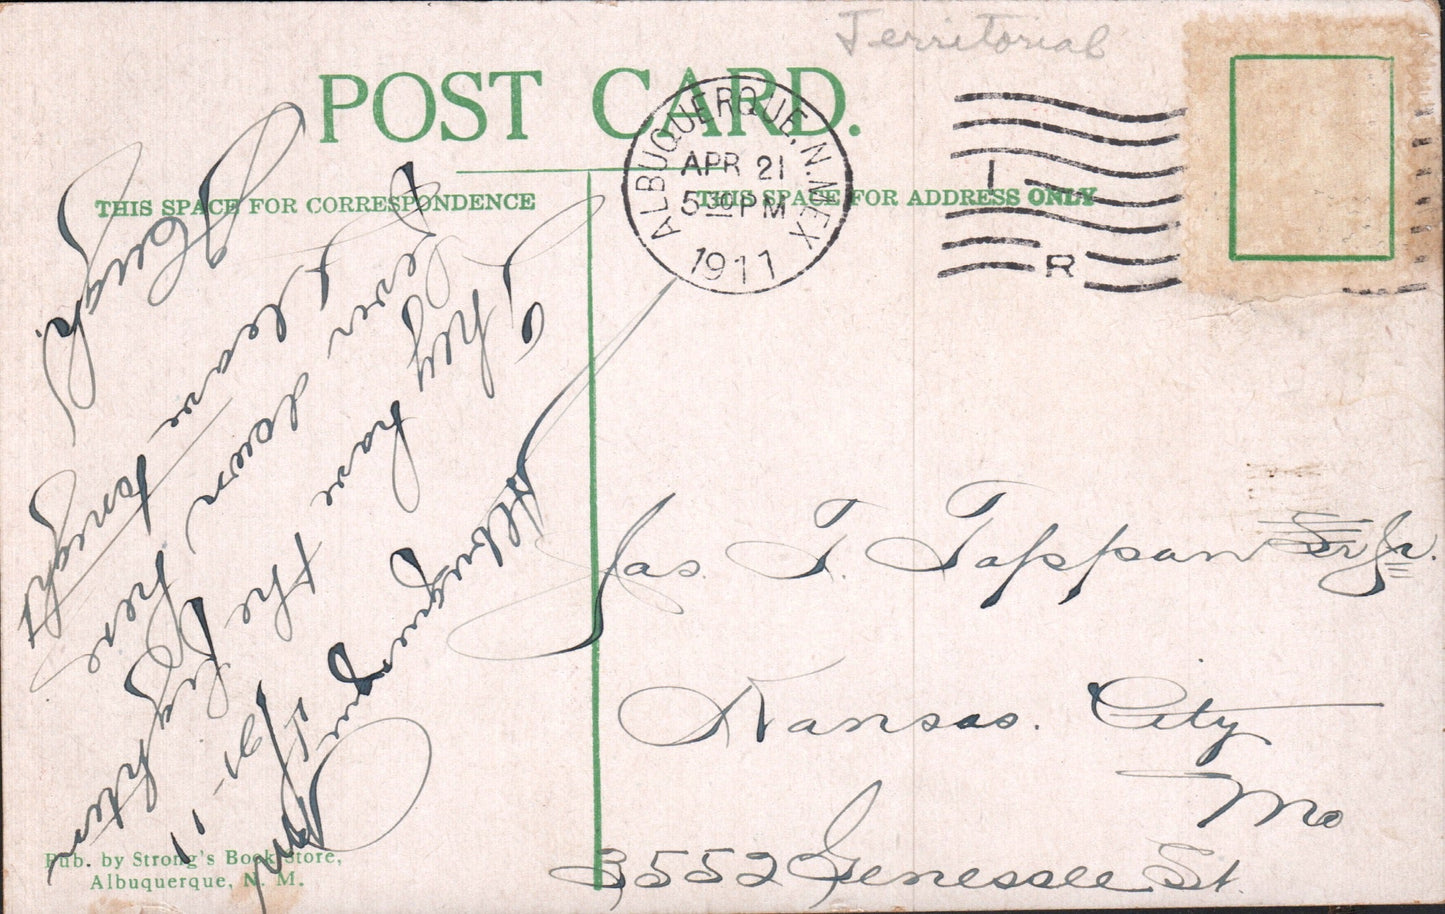 Territorial
POST CARD.
ALBUQUERQUE, N. MEX
APR 21
5 30 PM
1911
I
R
THIS SPACE FOR CORRESPONDENCE
THIS SPACE FOR ADDRESS ONLY
Albuquerque NM
4/21-11
They have the
fever down here
I leave tonight
Hugh
Jas. T. Tappan Sr Jr.
Kansas. City
Mo
3552 Genessee St.
Pub. by Strong's Book Store,
Albuquerque, N. M.